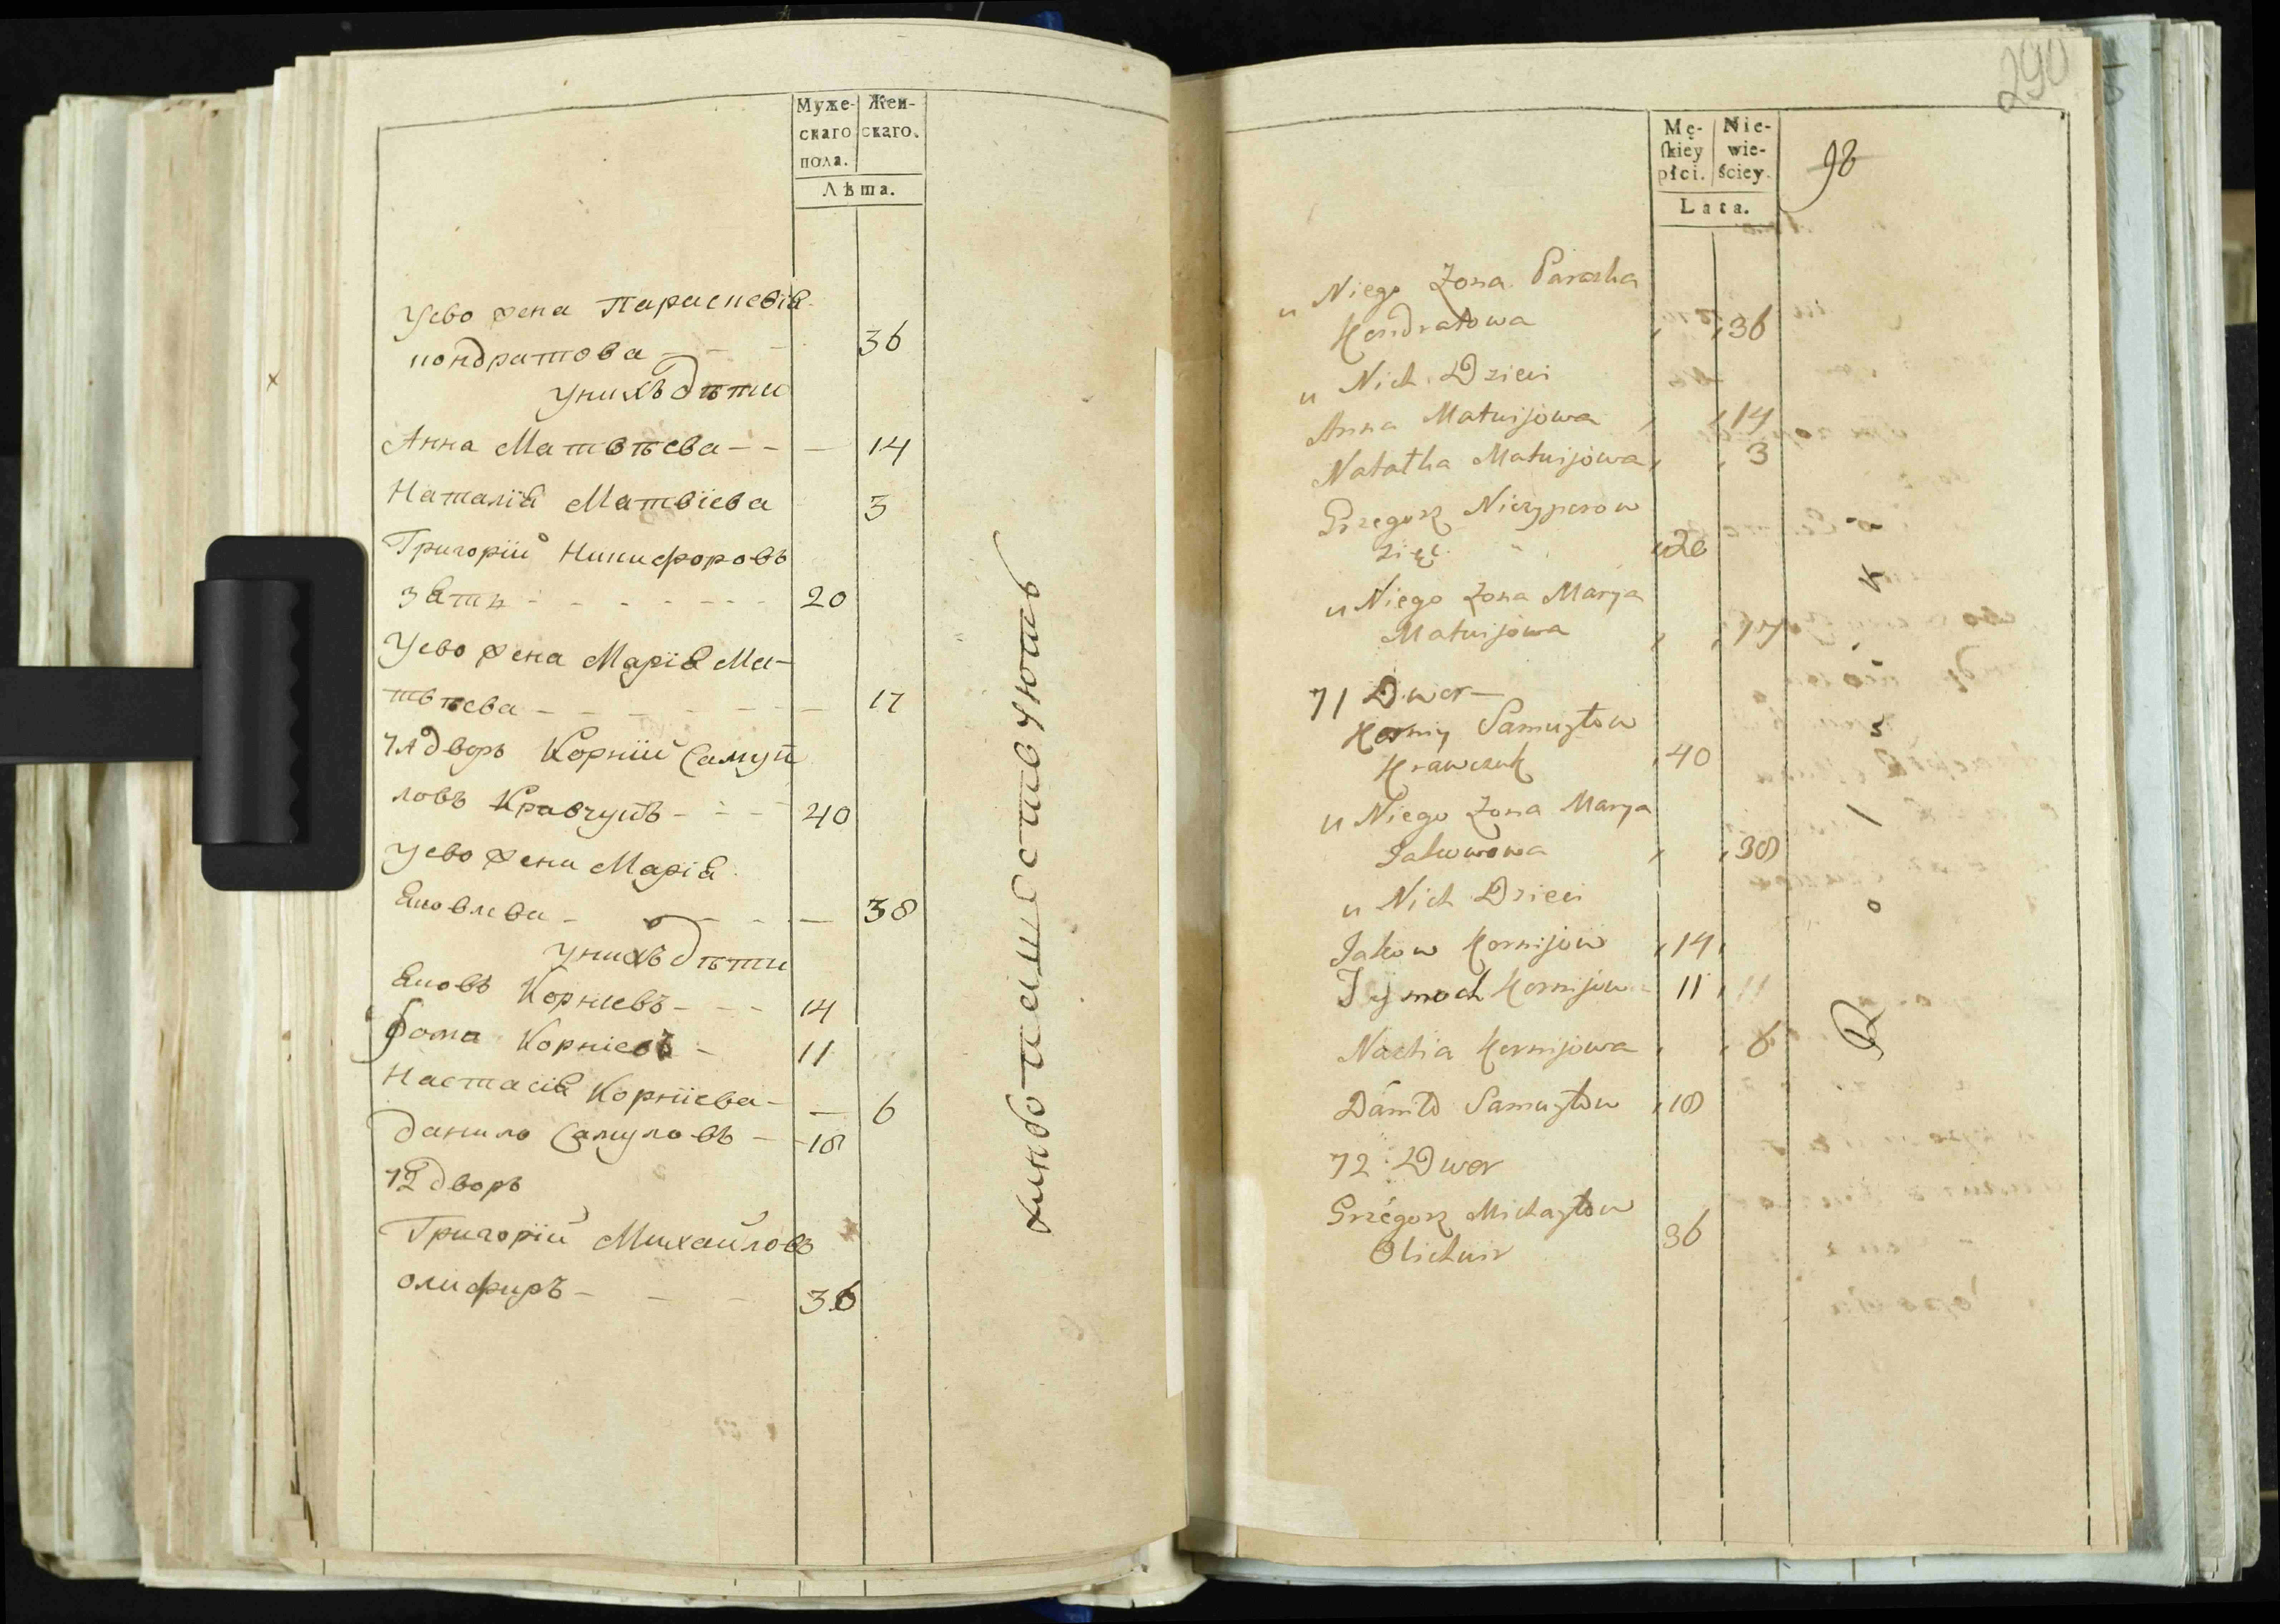 Муже-
скаго
пола.
Жен-
скаго.
Лѣта.
Уево жена Параскевія
кондратова - - - 36
унихъ дѣти
Анна Матвѣева - - — 14
Наталія Матвіева 3
Григорій Никифоровъ
зять - - - - - - 20
Уево жена Марія Ма-
твѣева - - - - - — 17
71 дворъ Корній Самуй
ловъ Кравчукъ - - - 40
Уево жена Марія
Яковлева - - - - — 38
унихъ дѣти
Яковъ Корнѣевъ - - - 14
Фома Корніевъ - 11
Настасія Корніева - — 6
данило Самуловъ - - 18
72 дворъ
Григорій Михайловъ
олифиръ - - - 36
290
98
Mę-
skiey
płci.
Nie-
wie-
ściey.
Lata.
u Niego Zona Paraska
Kondratowa 36
u Nich Dzieci
Anna Matwijowa 14
Natalka Matwijowa 3
Grzegorz Niczyporow
zięć 20
u Niego Zona Marya
Matwijowa 17
71 Dwor
Korniy Samuyłow
Krawczuk 40
u Niego Zona Marya
Jakowowa 38
u Nich Dzieci
Jakow Kornijow 14
Tymoch Kornijow 11
Nastia Kornijowa 6
Daniło Samuyłow 18
72 Dwor
Grzegorz Michayłow
Olichwir 36